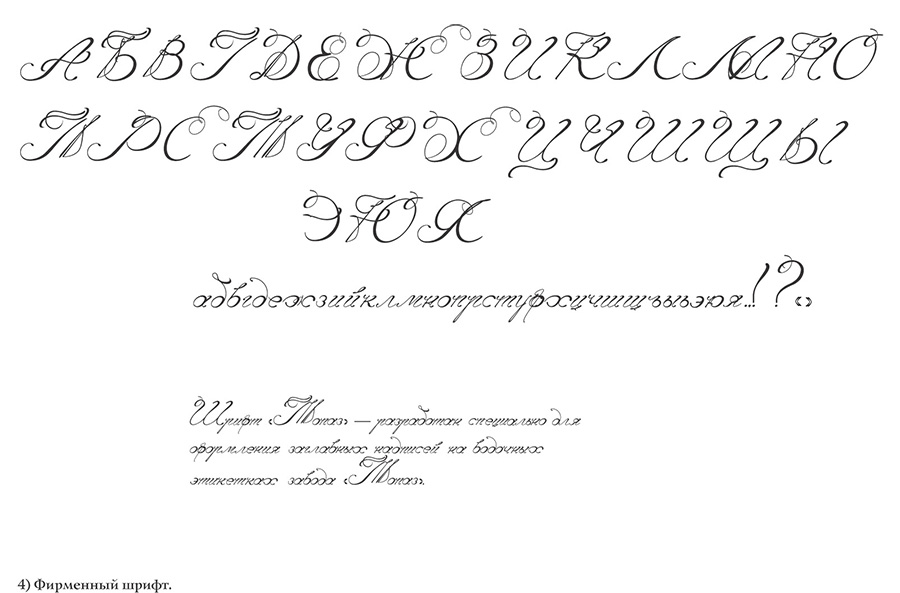 А Б В Г Д Е Ж З И К Л М Н О
П Р С Т У Ф Х Ц Ч Ш Щ Ы
Э Ю Я
абвгдежзийклмнопрстуфхцчшщъыьэюя...!?‹›
Шрифт ‹Топаз› — разработан специально для
оформления заглавных надписей на водочных
этикетках завода ‹Топаз›.
4) Фирменный шрифт.